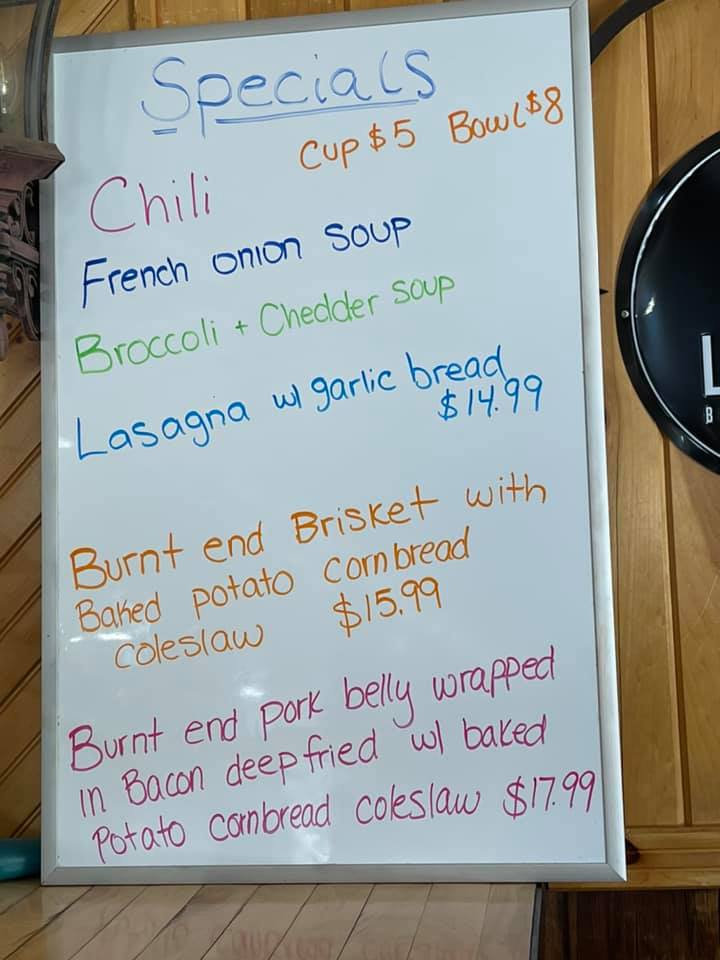 Specials
Cup $5 Bowl $8
Chili
French onion soup
Broccoli + Chedder soup
Lasagna w/ garlic bread
$14.99
Burnt end Brisket with
Baked potato cornbread
coleslaw $15.99
Burnt end pork belly wrapped
in Bacon deep fried w/ baked
Potato cornbread coleslaw $17.99
L
B